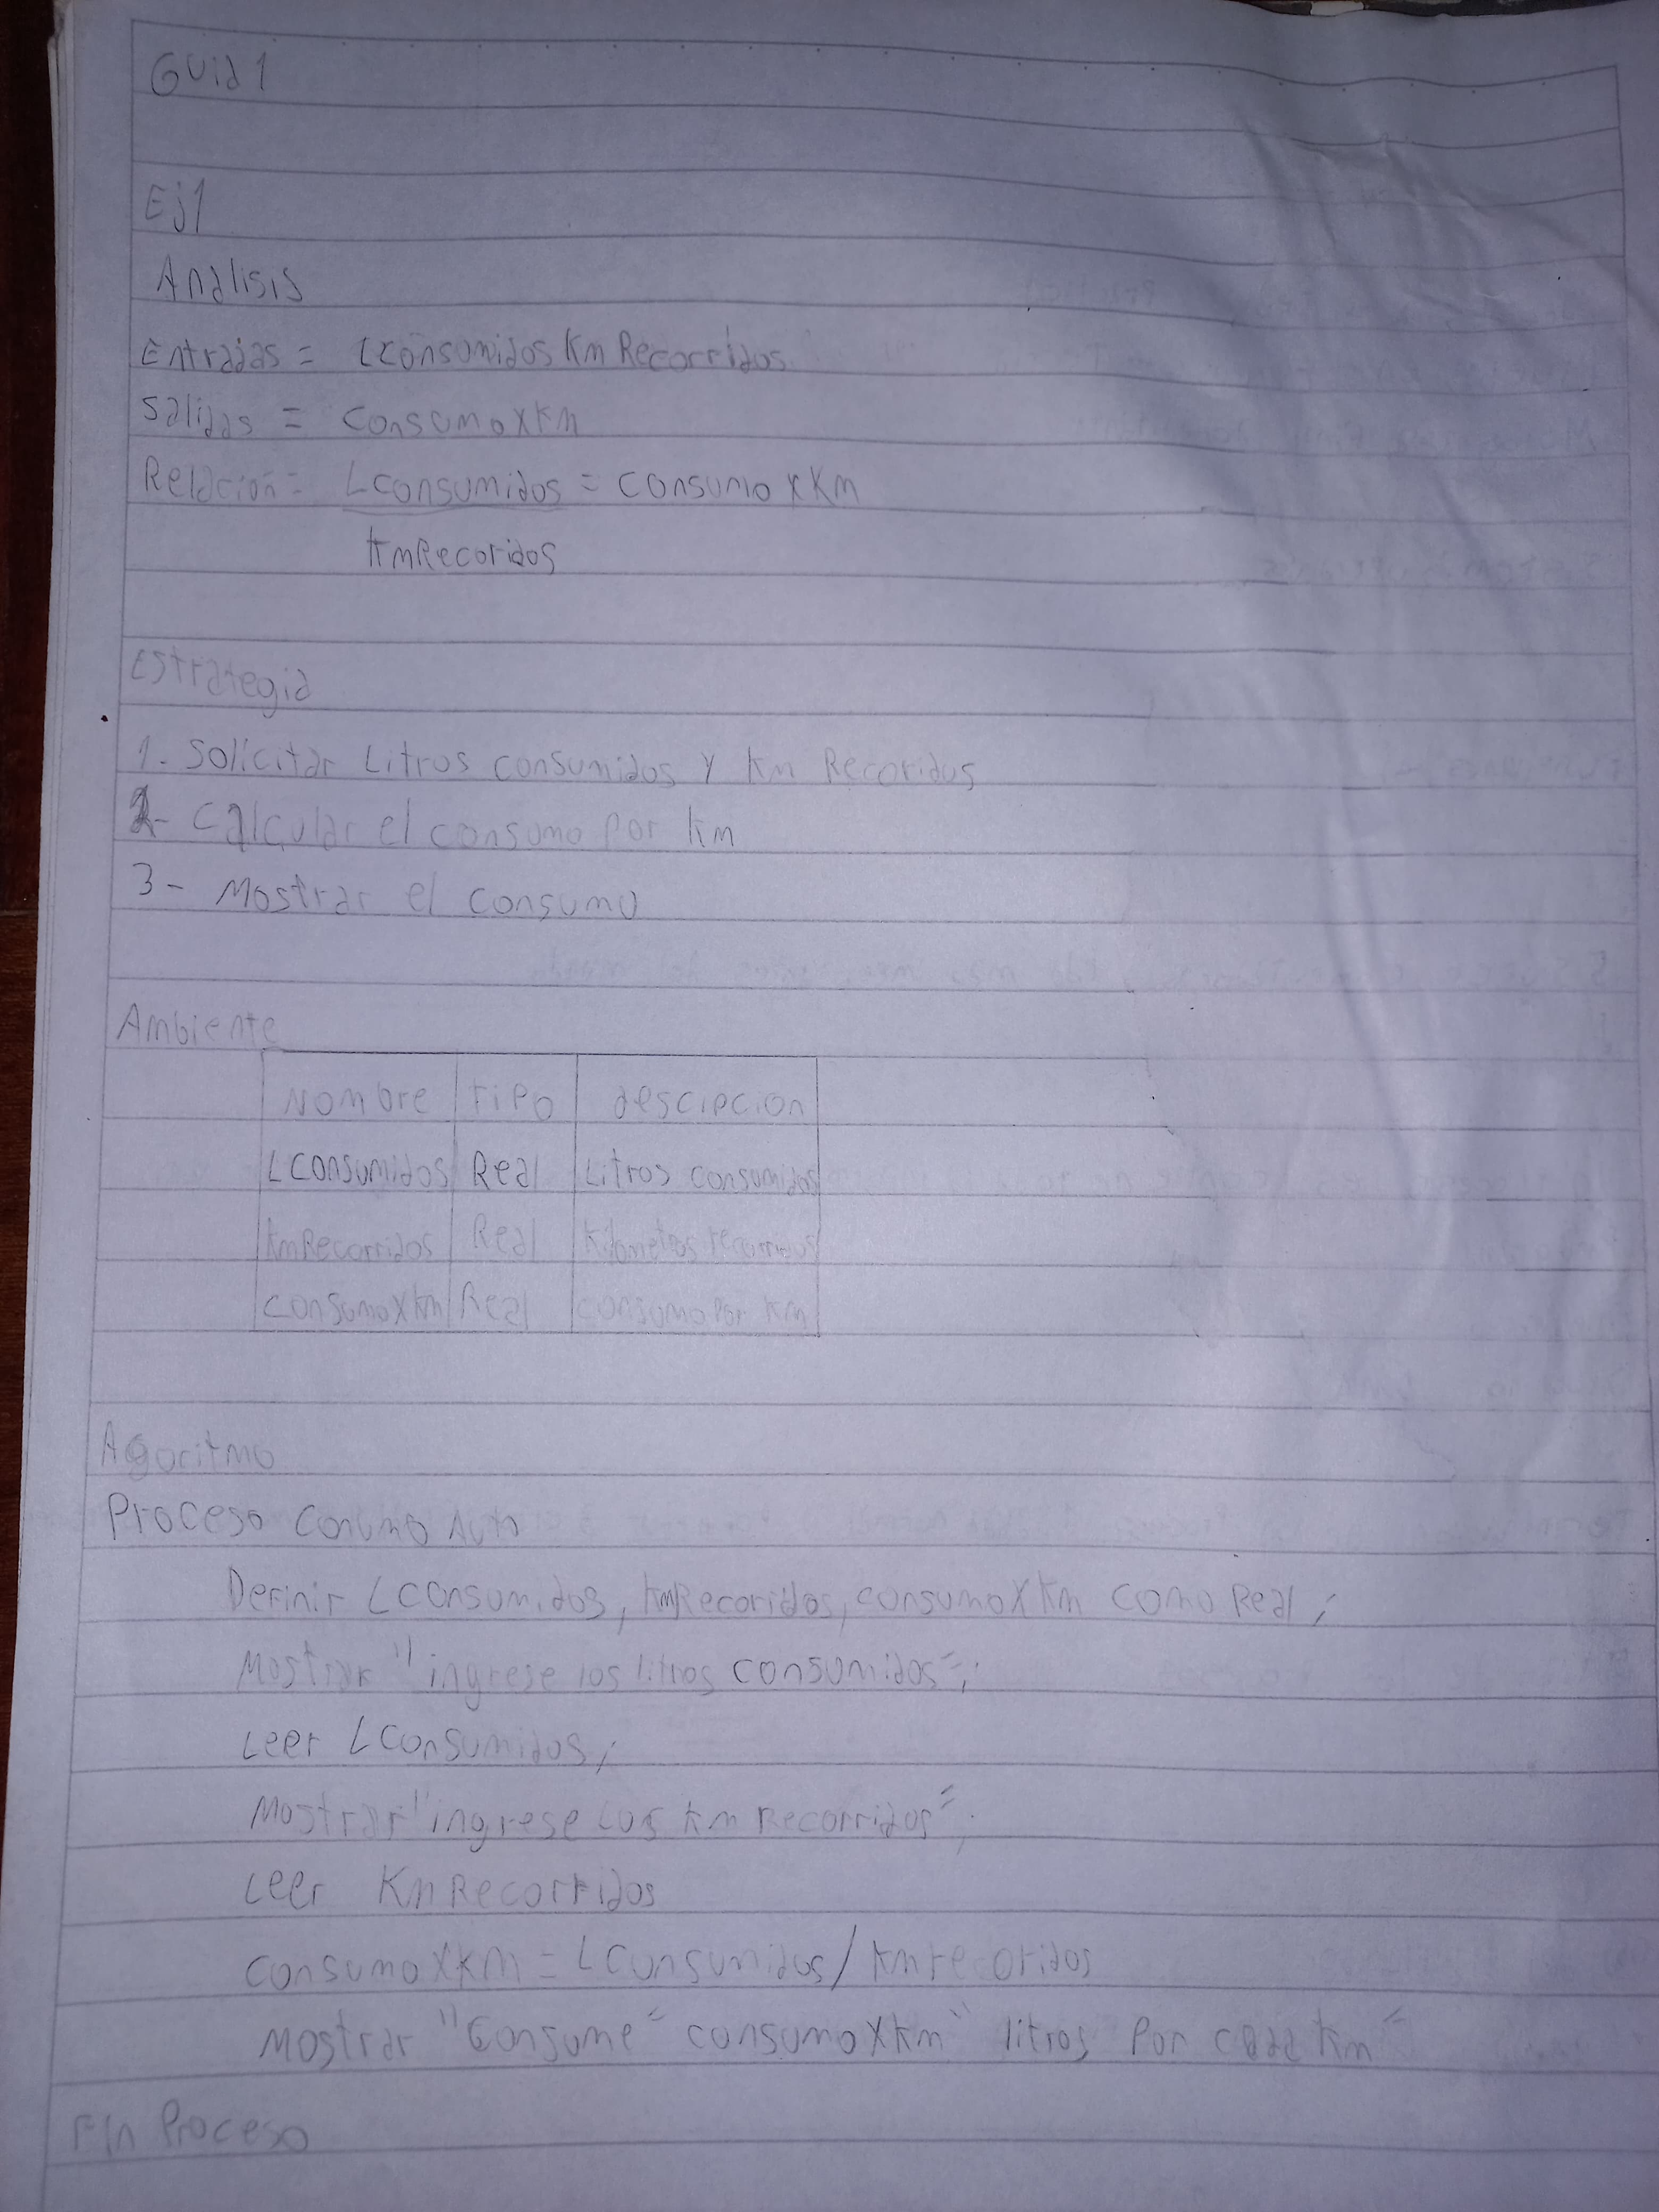 Guia 1
Ej1
Analisis
Entradas = Lconsumidos Km Recorridos
Salidas = ConsumoxKm
Relacion = Lconsumidos = consumo x Km
KmRecoridos
Estrategia
1. Solicitar Litros consumidos y Km Recoridos
2- Calcular el consumo por km
3- Mostrar el consumo
Ambiente
Nombre Tipo descipcion
Lconsumidos Real Litros consumidos
KmRecorridos Real Kilometos recorridos
consumoXkm Real consumo Por Km
Agoritmo
Proceso Consumo Auto
Definir Lconsumidos, KmRecoridos, consumoXKm como Real;
Mostrar "ingrese los litros consumidos";
Leer Lconsumidos;
Mostrar "ingrese los km recorridos";
Leer KmRecorridos
consumoXkm = Lconsumidos / Kmrecoridos
Mostrar "Consume" consumoXkm " litros Por cada km"
Fin Proceso